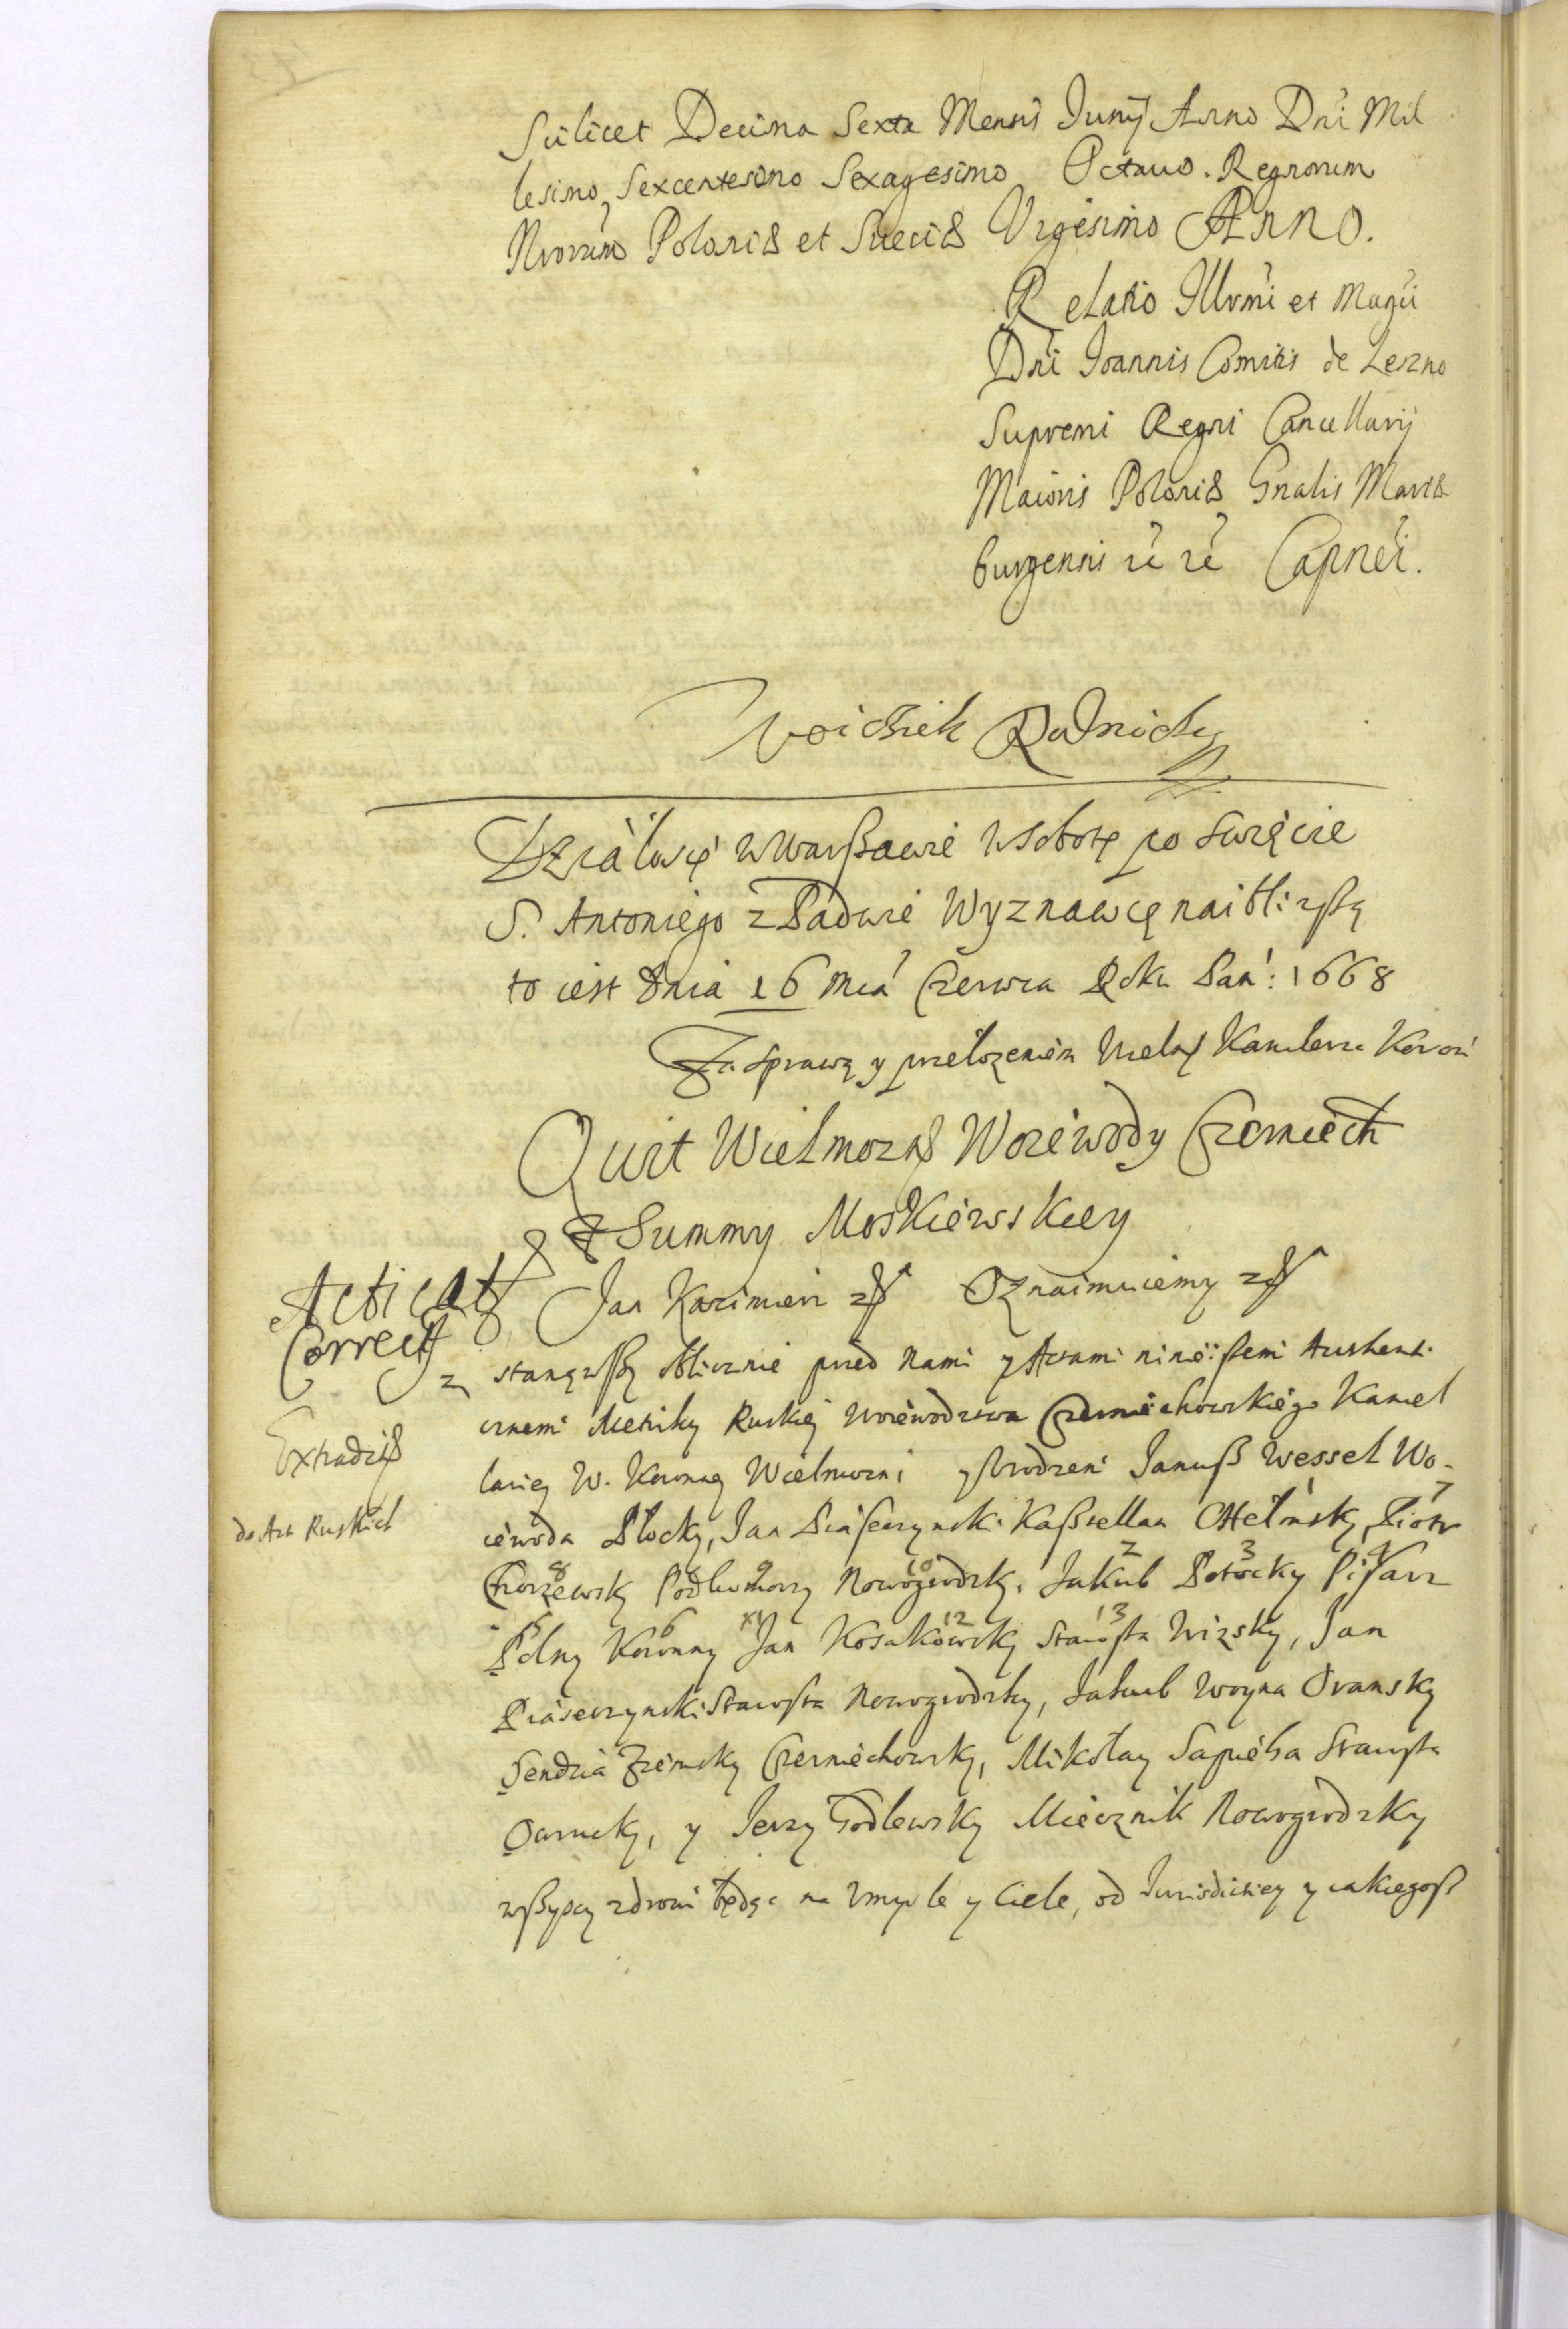 Scilicet Decima Sexta Mensis Junij Anno Dni Mil
lesimo Sexcentesimo Sexagesimo Octauo. Regnorum
Nrorum Poloniae et Sueciae Vigesimo Anno.
Relatio Illvmi et Magci
Dni Joannis Comitis de Leszno
Supremi Regni Cancellarij
Maioris Poloniae Gnalis Mariae
burgensis rc rc Capnei.
Woiciech
Działosię w Warßawie w Sobotę po Swięcie
S. Antoniego z Padwie Wyznawcę naibliżßą
to iest dnia 16 Mca Czerwca Roku Pan: 1668
Za sprawą y przełożeniem Wielmo Kanclerza Koron
Quit Wielmoznego Woiewody Czerniech
z Summy Moskiewskiey
Acticat
Correct
Extradit
do Akt Ruskich
Jan Kazimierz Oznaimuiemy
stanąwßy oblicznie przed Nami y Actami ninieißemi Authenti
cznemi Metriky Ruskiej Woiewodztwa Czerniechowskiego Kancel
lariey W. Koronney Wielmozni y Urodzeni Janusß Wessel Wo-
iewoda Płocky, Jan Piaseczynski Kaßtellan Chełmsky, Piotr 1 7
Podkomorzy Nowogrodzky, Jakub Potocky Pisarz 8 9 10 2 3 4
Polny Koronny Jan Kosakowsky Starosta Wizsky, Jan 5 6 XI 12 13
Piaseczynski Starosta Nowogrodzky, Jakub Woyna Oransky
Sendzia Ziemsky Czerniechowsky, Mikołay Sapieha Starosta
Owrucky, y Jerzy Godlewsky Miecznik Nowogrodzky
wßyscy zdrowi będąc na Vmysle y Ciele, od Jurisdictiey y iakiegoß